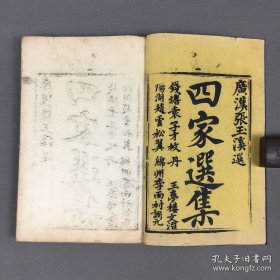 廣漢張玉溪選
四家選集
錢塘袁子才枚 丹
王夢樓文治
陽湖趙雲松翼 綿州李雨村調元
孔夫子旧书网